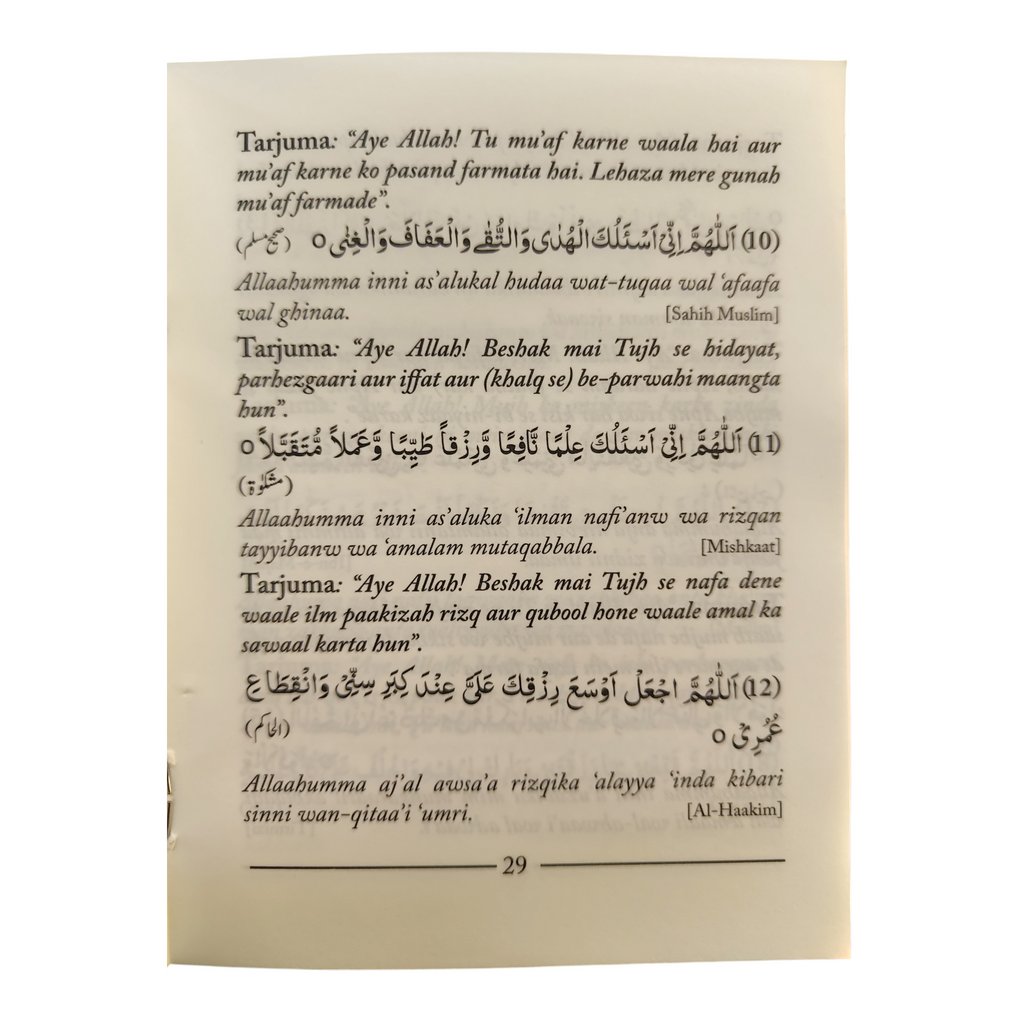 Tarjuma: “Aye Allah! Tu mu’af karne waala hai aur
mu’af karne ko pasand farmata hai. Lehaza mere gunah
mu’af farmade”.
(10) اَللّٰهُمَّ اِنِّىْ اَسْئَلُكَ الْهُدٰى وَالتُّقٰى وَالْعَفَافَ وَالْغِنٰى ٥ (صحیح مسلم)
Allaahumma inni as’alukal hudaa wat-tuqaa wal ‘afaafa
wal ghinaa. [Sahih Muslim]
Tarjuma: “Aye Allah! Beshak mai Tujh se hidayat,
parhezgaari aur iffat aur (khalq se) be-parwahi maangta
hun”.
(11) اَللّٰهُمَّ اِنِّىْ اَسْئَلُكَ عِلْمًا نَّافِعًا وَّرِزْقاً طَيِّبًا وَّعَمَلاً مُّتَقَبَّلاً ٥
(مشکوٰۃ)
Allaahumma inni as’aluka ‘ilman nafi’anw wa rizqan
tayyibanw wa ‘amalam mutaqabbala. [Mishkaat]
Tarjuma: “Aye Allah! Beshak mai Tujh se nafa dene
waale ilm paakizah rizq aur qubool hone waale amal ka
sawaal karta hun”.
(12) اَللّٰهُمَّ اجْعَلْ اَوْسَعَ رِزْقِكَ عَلَىَّ عِنْدَ كِبَرِ سِنِّىْ وَانْقِطَاعِ
عُمُرِىْ ٥ (الحاکم)
Allaahumma aj’al awsa’a rizqika ‘alayya ‘inda kibari
sinni wan-qitaa’i ‘umri. [Al-Haakim]
29